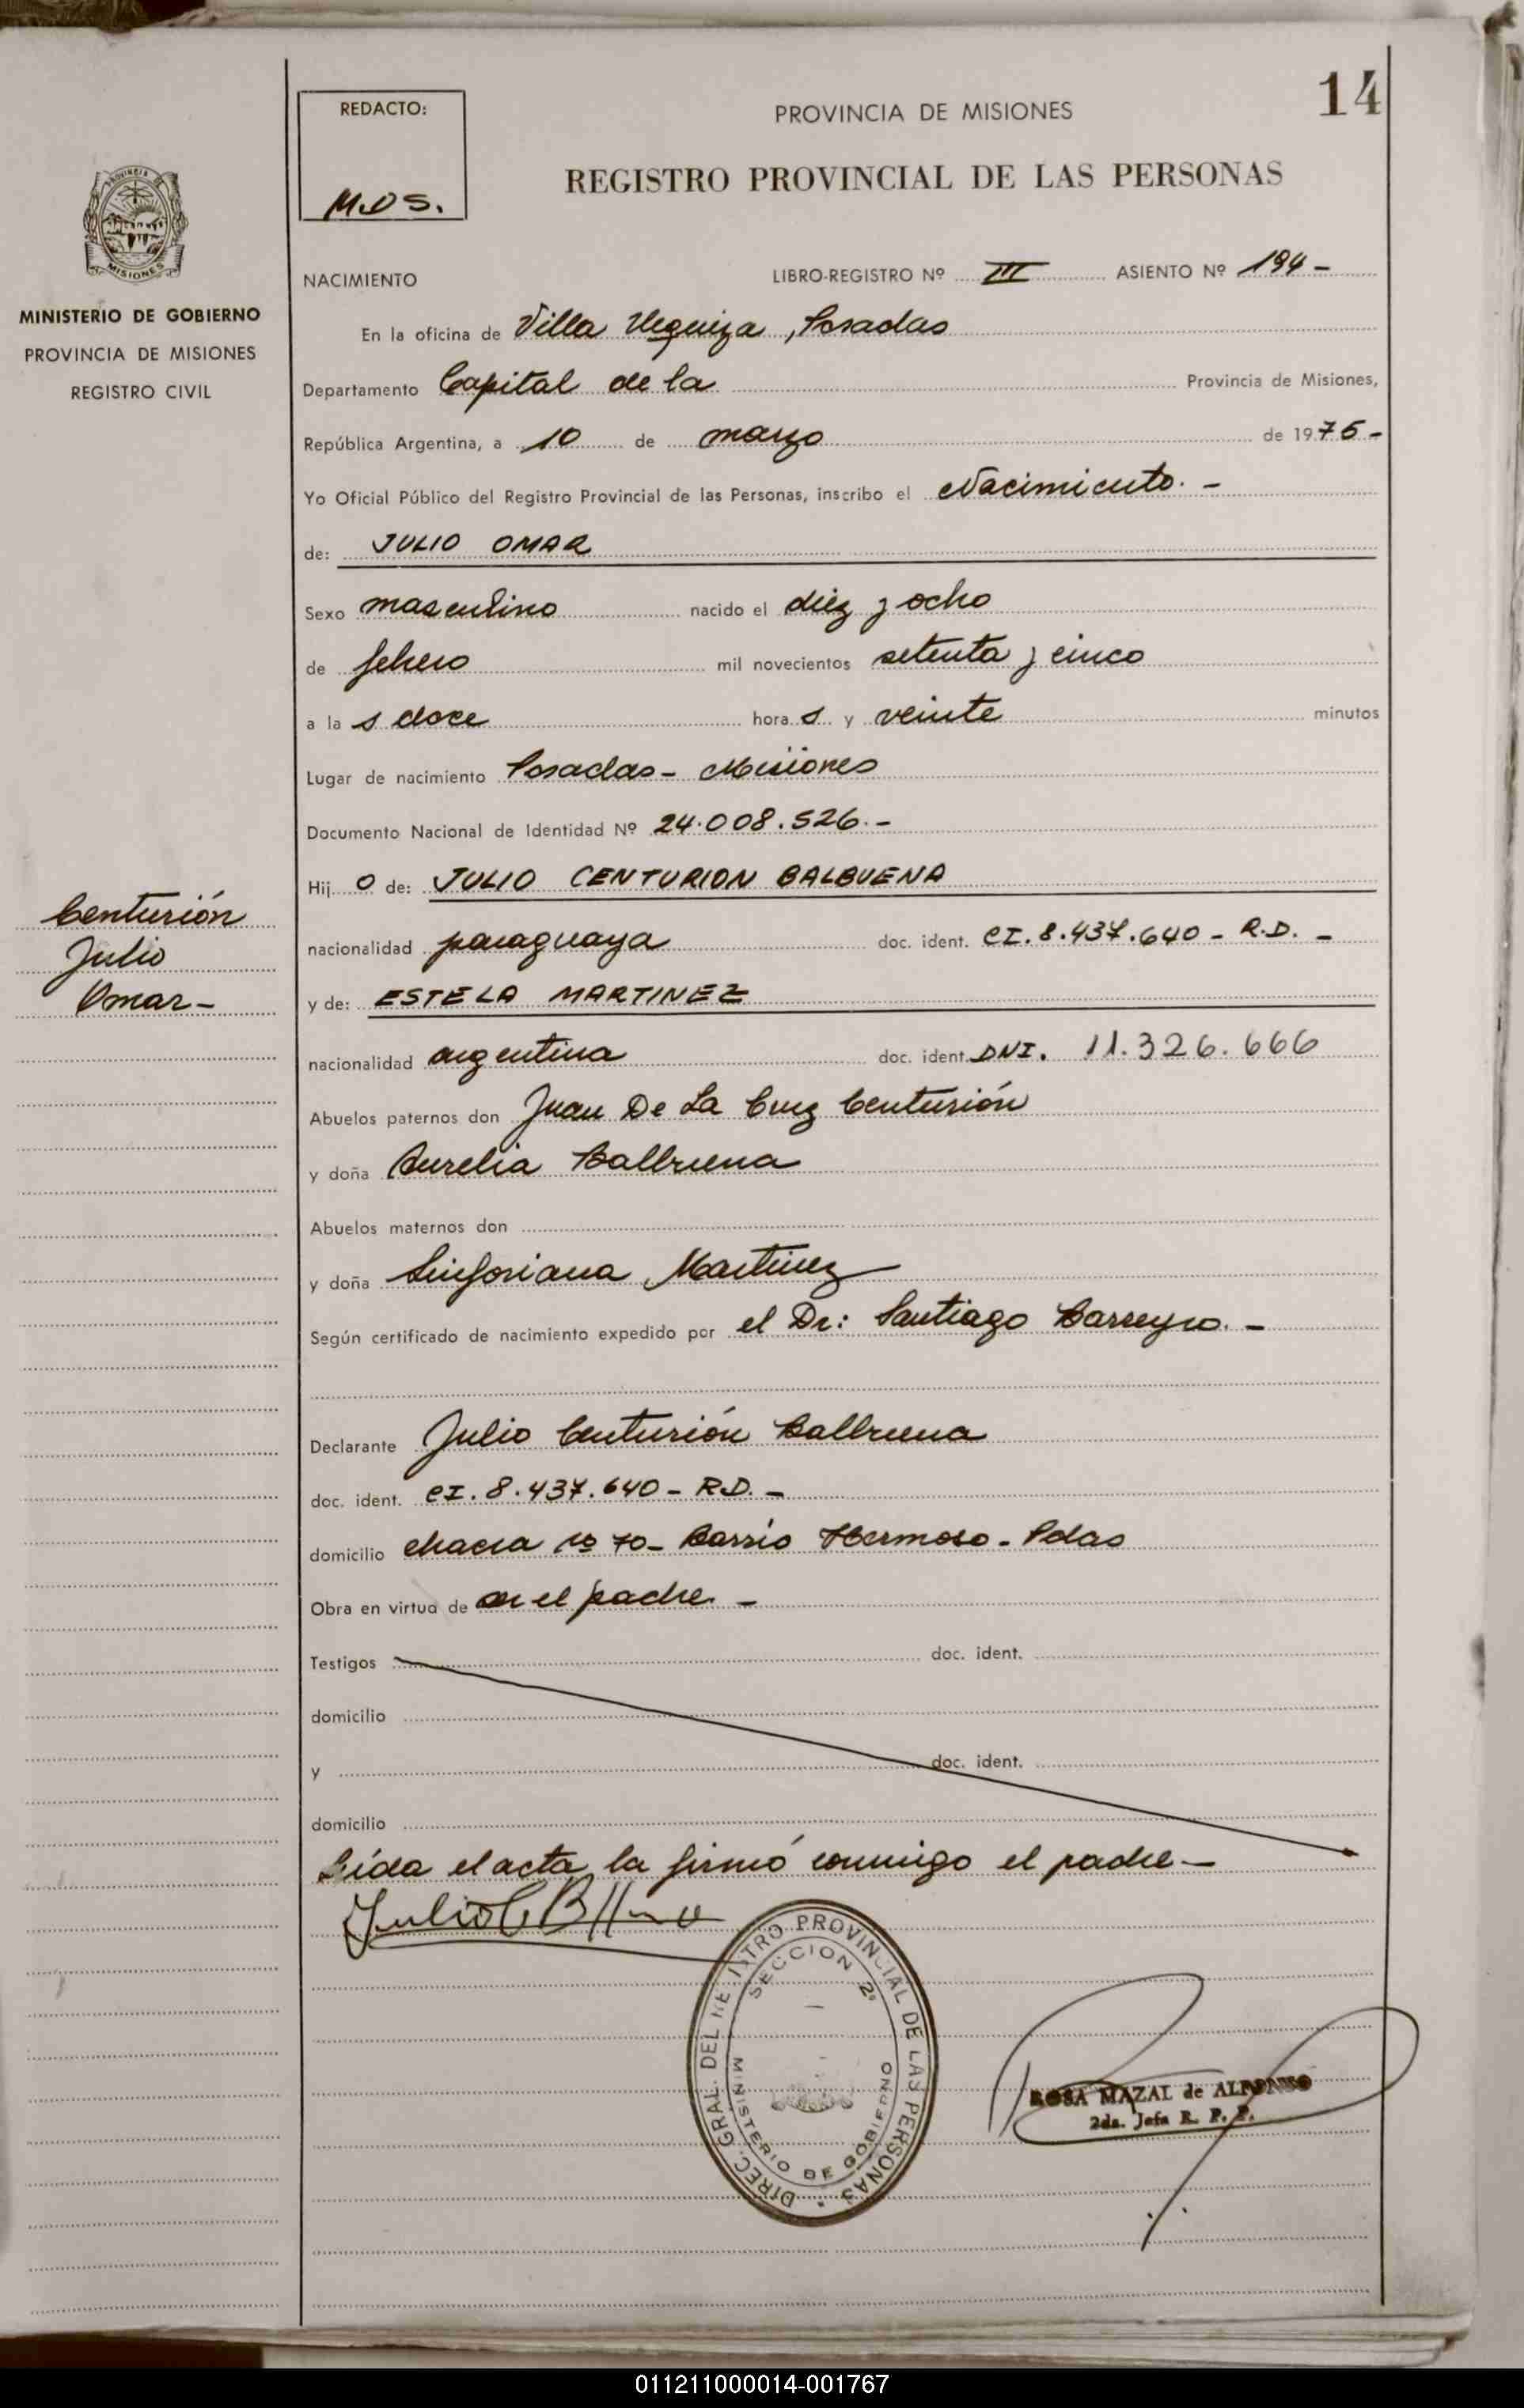 14
REDACTO:
M.D.S.
PROVINCIA DE MISIONES
REGISTRO PROVINCIAL DE LAS PERSONAS
PROVINCIA DE
MISIONES
MINISTERIO DE GOBIERNO
PROVINCIA DE MISIONES
REGISTRO CIVIL
NACIMIENTO LIBRO-REGISTRO Nº III ASIENTO Nº 194-
En la oficina de Villa Urquiza, Posadas
Departamento Capital de la Provincia de Misiones,
República Argentina, a 10 de marzo de 1975-
Yo Oficial Público del Registro Provincial de las Personas, inscribo el Nacimiento.-
de: JULIO OMAR
Sexo masculino nacido el diez y ocho
de febrero mil novecientos setenta y cinco
a la s doce hora s y veinte minutos
Lugar de nacimiento Posadas- Misiones
Documento Nacional de Identidad Nº 24.008.526.-
Hij o de: JULIO CENTURION BALBUENA
nacionalidad paraguaya doc. ident. CI. 8.437.640- R.D.-
y de: ESTELA MARTINEZ
nacionalidad argentina doc. ident. DNI. 11.326.666
Abuelos paternos don Juan De La Cruz Centurión
y doña Aurelia Balbuena
Abuelos maternos don
y doña Sinforiana Martinez
Según certificado de nacimiento expedido por el Dr: Santiago Barreyro.-
Declarante Julio Centurión Balbuena
doc. ident. CI. 8.437.640- R.D.-
domicilio chacra nº 70- Barrio Hermoso- Pdas
Obra en virtud de ser el padre.-
Testigos doc. ident.
domicilio
y doc. ident.
domicilio
Leída el acta, la firmó conmigo el padre-
Centurión
Julio
Omar-
DIREC. GRAL. DEL REGISTRO PROVINCIAL DE LAS PERSONAS
SECCION 2ª
MINISTERIO DE GOBIERNO
ROSA MAZAL de ALFONSO
2da. Jefa R. P. P.
011211000014-001767